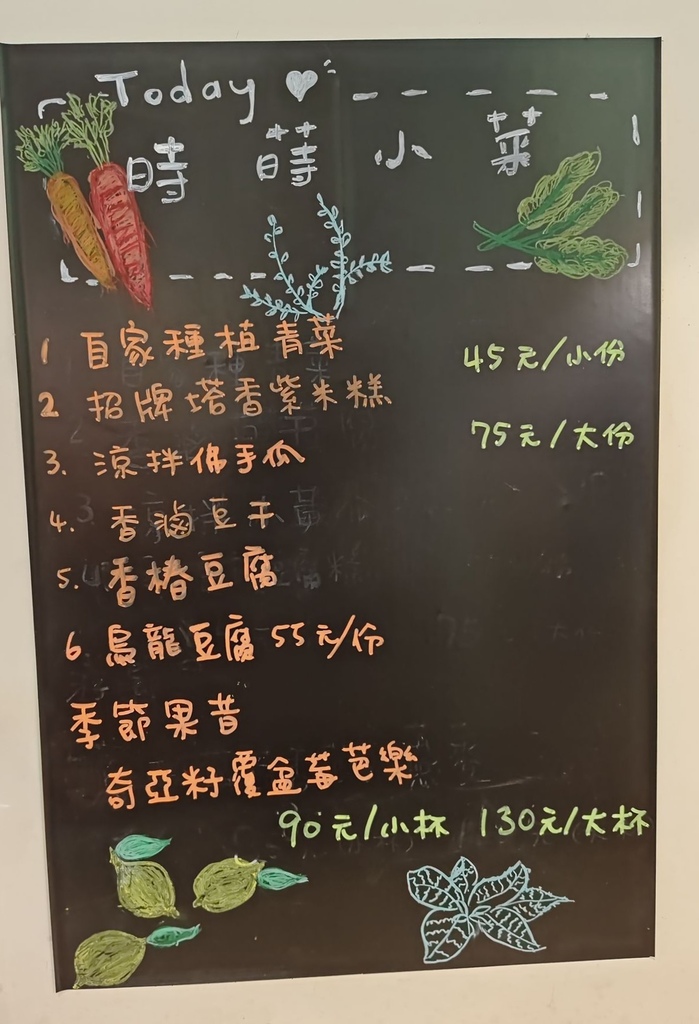 Today
時蒔小菜
1 自家種植青菜 45元/小份
2 招牌塔香紫米糕
75元/大份
3. 涼拌佛手瓜
4. 香滷豆干
5. 香椿豆腐
6 烏龍豆腐 55元/份
季節果昔
奇亞籽覆盆莓芭樂
90元/小杯 130元/大杯